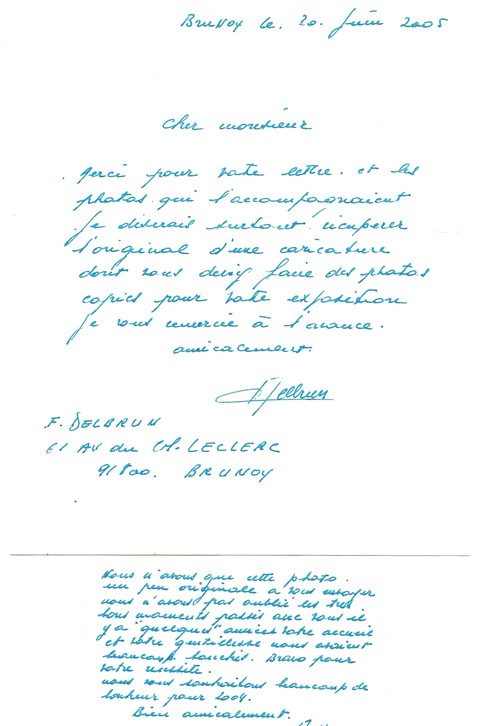 Brunoy le. 20. Juin 2005
cher monsieur
Merci pour votre lettre. et les
photos. qui l'accompagnaient
Je désirais surtout, récupérer
l'original d'une caricature
dont vous deviez faire des photos
copies pour votre exposition
Je vous remercie à l'avance.
amicalement.
Delbrun
F. DELBRUN
61 AV du Gl. LECLERC
91800. BRUNOY
Nous n'avons que cette photo.
un peu originale a vous envoyer
nous n'avons pas oublié les très
bons moments passés avec vous il
y a "quelques" années votre accueil
et votre gentillesse nous avaient
beaucoup touchés. Bravo pour
votre réussite.
nous vous souhaitons beaucoup de
bonheur pour 2004.
Bien amicalement.